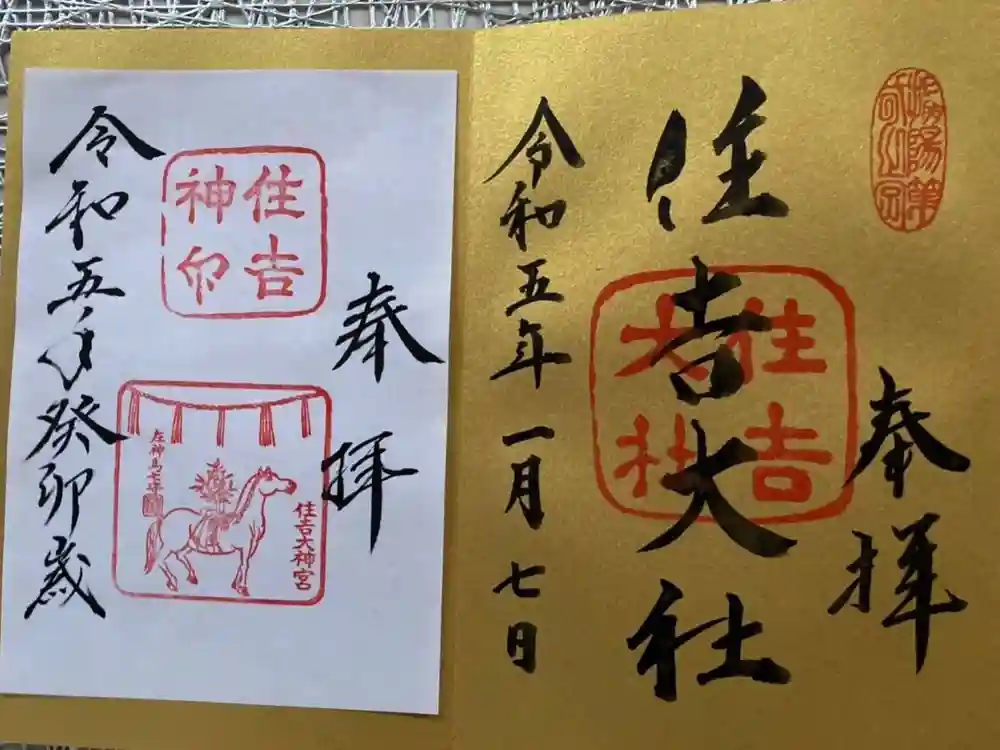 奉拝
住吉大社
住吉
大社
令和五年一月七日
奉拝
住吉
神印
住吉大神宮
令和五年癸卯歳